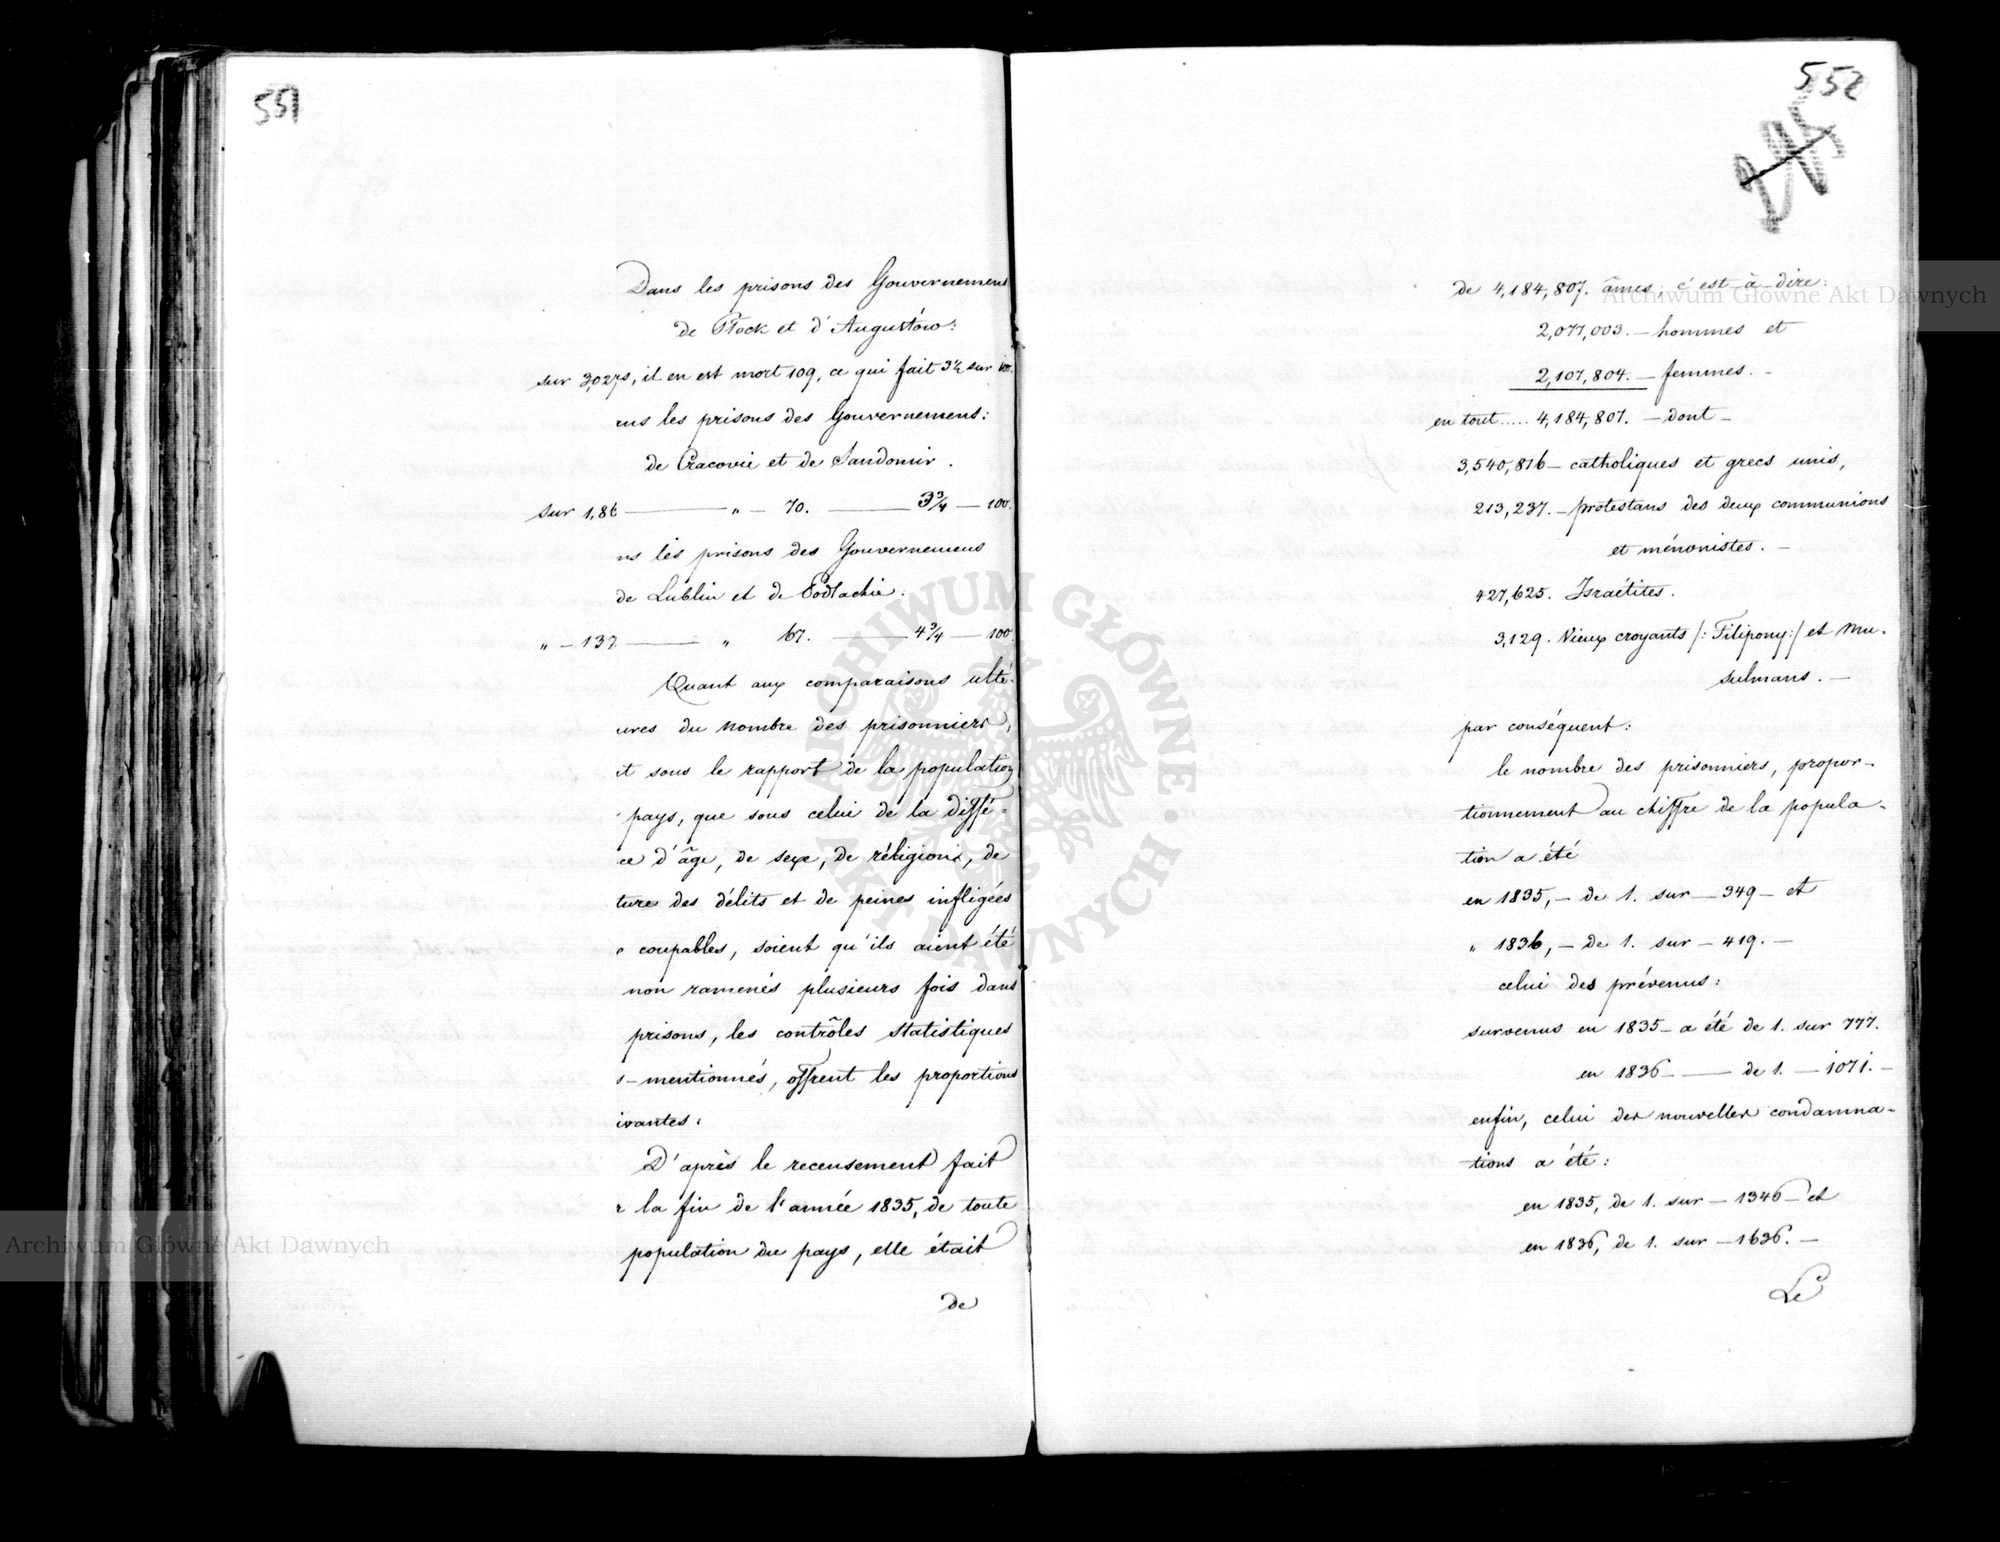 551
Dans les prisons des Gouvernemens
de Płock et d'Augustów:
sur 3,027s, il en est mort 109, ce qui fait 3½ sur 100.
ns les prisons des Gouvernemens:
de Cracovie et de Sandomir.
sur 1,86 — " — 70. — 3¾ — 100.
ns les prisons des Gouvernemens
de Lublin et de Podlachie:
" — 137 — " 67. — 4¾ — 100
Quant aux comparaisons ulté-
ures du nombre des prisonniers,
it sous le rapport de la population
pays, que sous celui de la diffé-
ce d'âge, de sexe, de réligion, de
ture des délits et de peines infligées
coupables, soient qu'ils aient été
non ramenés plusieurs fois dans
prisons, les contrôles statistiques
s-mentionnés, offrent les proportions
ivantes:
D'après le recensement fait
r la fin de l'année 1835, de toute
population du pays, elle était
de
552
de 4,184,807. âmes, c'est-à-dire:
2,077,003. — hommes et
2,107,804. — femmes. -
en tout ..... 4,184,807. — dont -
3,540,816 — catholiques et grecs unis,
213,237. — protestans des deux communions
et ménonistes. —
427,625. Israélites.
3,129. Vieux croyants /: Filipony:/ et Mu-
sulmans. —
par conséquent:
le nombre des prisonniers, propor-
tionnement au chiffre de la popula-
tion a été
en 1835, — de 1. sur — 349 — et
" 1836, — de 1. sur — 419. —
celui des prévenus:
survenus en 1835 — a été de 1. sur 777.
en 1836 — de 1. — 1071. —
enfin, celui des nouvelles condamna-
tions a été:
en 1835, de 1. sur — 1346 — et
en 1836, de 1. sur — 1636. —
Le
Archiwum Główne Akt Dawnych
Archiwum Główne Akt Dawnych
ARCHIWUM GŁÓWNE AKT DAWNYCH